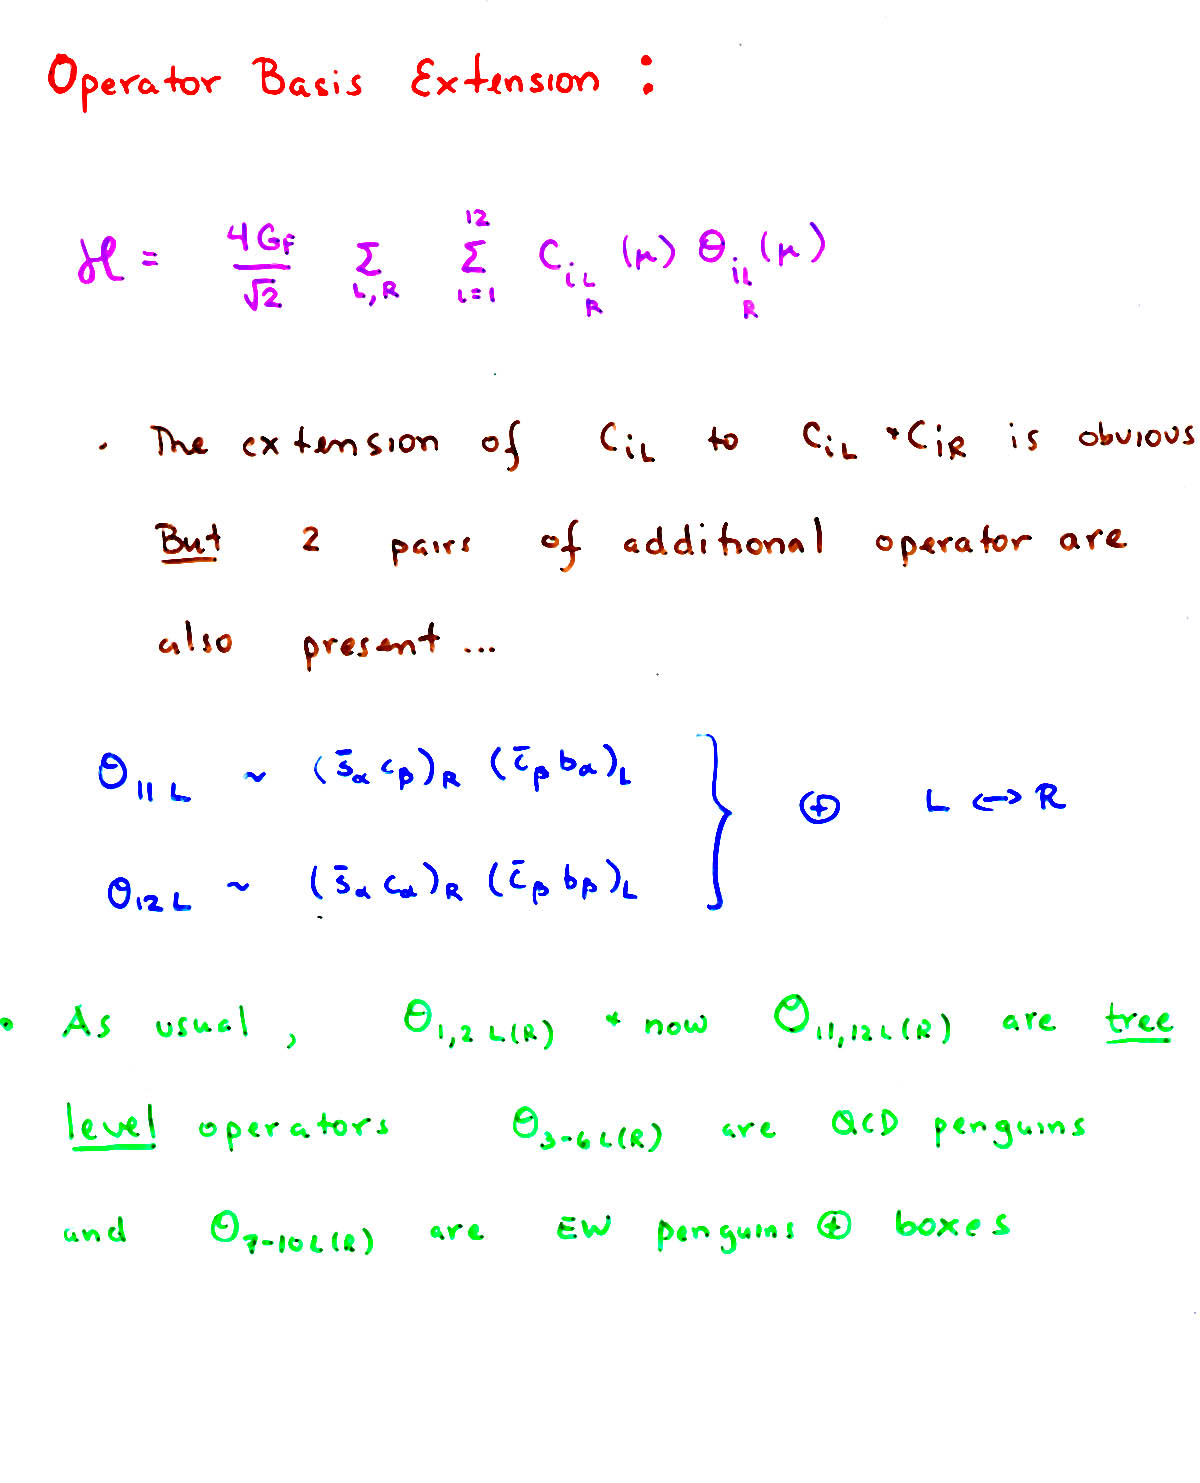 Operator Basis Extension :
ℋ = 4G_F/√2 Σ_{L,R} Σ_{i=1}^{12} C_{iL R} (μ) O_{iL R} (μ)
• The extension of C_{iL} to C_{iL} + C_{iR} is obvious
But 2 pairs of additional operator are
also present ...
O_{11L} ~ (s̄_α c_β)_R (c̄_β b_α)_L
O_{12L} ~ (s̄_α c_α)_R (c̄_β b_β)_L } ⊕ L ↔ R
• As usual, O_{1,2 L(R)} + now O_{11,12 L(R)} are tree
level operators O_{3-6L(R)} are QCD penguins
and O_{7-10L(R)} are EW penguins ⊕ boxes